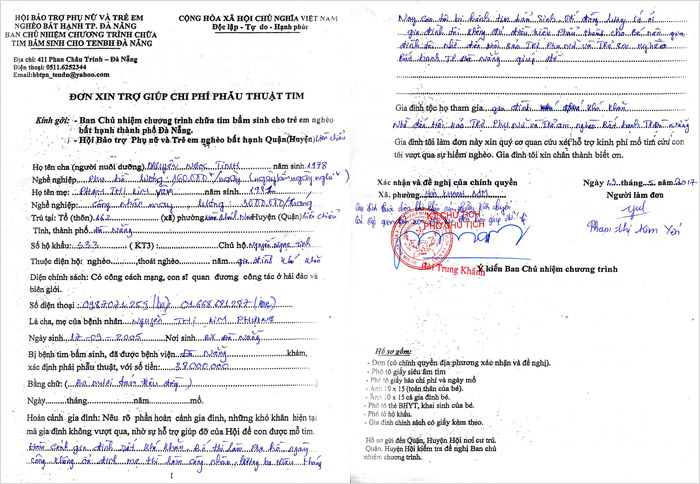 HỘI BẢO TRỢ PHỤ NỮ VÀ TRẺ EM
NGHÈO BẤT HẠNH TP. ĐÀ NẴNG
BAN CHỦ NHIỆM CHƯƠNG TRÌNH CHỮA
TIM BẨM SINH CHO TENBH ĐÀ NẴNG
CỘNG HÒA XÃ HỘI CHỦ NGHĨA VIỆT NAM
Độc lập - Tự do - Hạnh phúc
Địa chỉ: 411 Phan Châu Trinh – Đà Nẵng
Điện thoại: 0511.6252344
Email:hbtpn_tendn@yahoo.com
ĐƠN XIN TRỢ GIÚP CHI PHÍ PHẪU THUẬT TIM
Kính gởi: - Ban Chủ nhiệm chương trình chữa tim bẩm sinh cho trẻ em nghèo
bất hạnh thành phố Đà Nẵng.
- Hội Bảo trợ Phụ nữ và Trẻ em nghèo bất hạnh Quận(Huyện) Liên Chiểu
Họ tên cha (người nuôi dưỡng) NGUYỄN NGỌC TÌNH năm sinh 1978
Nghề nghiệp: Phụ hồ lương 160.000/ngày
Họ tên mẹ: PHẠM THỊ KIM YẾN năm sinh 1981
Nghề nghiệp: công nhân may, lương: 3.000.000/tháng
Trú tại: Tổ (thôn) 162 (xã) phường Hòa Khánh Nam Huyện (Quận) Liên Chiểu
Tỉnh, thành phố Đà Nẵng
Số hộ khẩu: 533 ( KT3) : Chủ hộ Nguyễn Ngọc Tình
Thuộc diện hộ: nghèo, thoát nghèo năm gia đình khó khăn
Diện chính sách: Có công cách mạng, con sĩ quan đương công tác ở hải đảo và
biên giới.
Số điện thoại : 0987071259 (ba) 01668281287 (mẹ)
Là cha, mẹ của bệnh nhân NGUYỄN THỊ KIM PHƯỢNG
Ngày sinh 17-09-2005 Nơi sinh Đà Nẵng
Bị bệnh tim bẩm sinh, đã được bệnh viện Đà Nẵng khám,
xác định phải phẫu thuật, với số tiền: 38000000
Bằng chữ: ( Ba mươi tám triệu đồng )
Ngày tháng năm mổ.
Hoàn cảnh gia đình: Nêu rõ phần hoàn cảnh gia đình, những khó khăn hiện tại
mà gia đình không vượt qua, nhờ sự hỗ trợ giúp đỡ của Hội để con được mổ tim
Hoàn cảnh gia đình rất khó khăn, Ba thì làm Phụ hồ ngày
công không ổn định mẹ thì làm công nhân, lương ba triệu tháng
1
Nay con tôi bị bệnh tim bẩm sinh
gia đình tôi không đủ điều kiện Phẫu thuật cho
Gia đình tộc họ tham gia gia đình khó khăn
Nhờ đến Hội bảo Trợ Phụ Nữ và Trẻ em nghèo Bất hạnh TP Đà Nẵng
Gia đình tôi làm đơn này xin quý cơ quan cứu xét hỗ trợ kinh phí mổ tim cứu con
tôi vượt qua sự hiểm nghèo. Gia đình tôi xin chân thành biết ơn.
Xác nhận và đề nghị của chính quyền
Xã, phường HOÀ KHÁNH NAM
Ngày 23 tháng 5 năm 2017
Người làm đơn
Yến
Phạm Thị Kim Yến
KT. CHỦ TỊCH
PHÓ CHỦ TỊCH
Bùi Trung Khánh
Ý kiến Ban Chủ nhiệm chương trình
Hồ sơ gồm:
- Đơn (có chính quyền địa phương xác nhận và đề nghị).
- Phô tô giấy siêu âm tim
- Phô tô giấy báo chi phí và ngày mổ
- Ảnh 10 x 15 (toàn thân của bé).
- Ảnh 10 x 15 cả gia đình bé.
- Phô tô thẻ BHYT, khai sinh của bé.
- Phô tô hộ khẩu.
- Gia đình chính sách có giấy kèm theo.
Hồ sơ gởi đến Quận, Huyện Hội nơi cư trú.
Quận, Huyện Hội kiểm tra đề nghị Ban chủ
nhiệm chương trình.